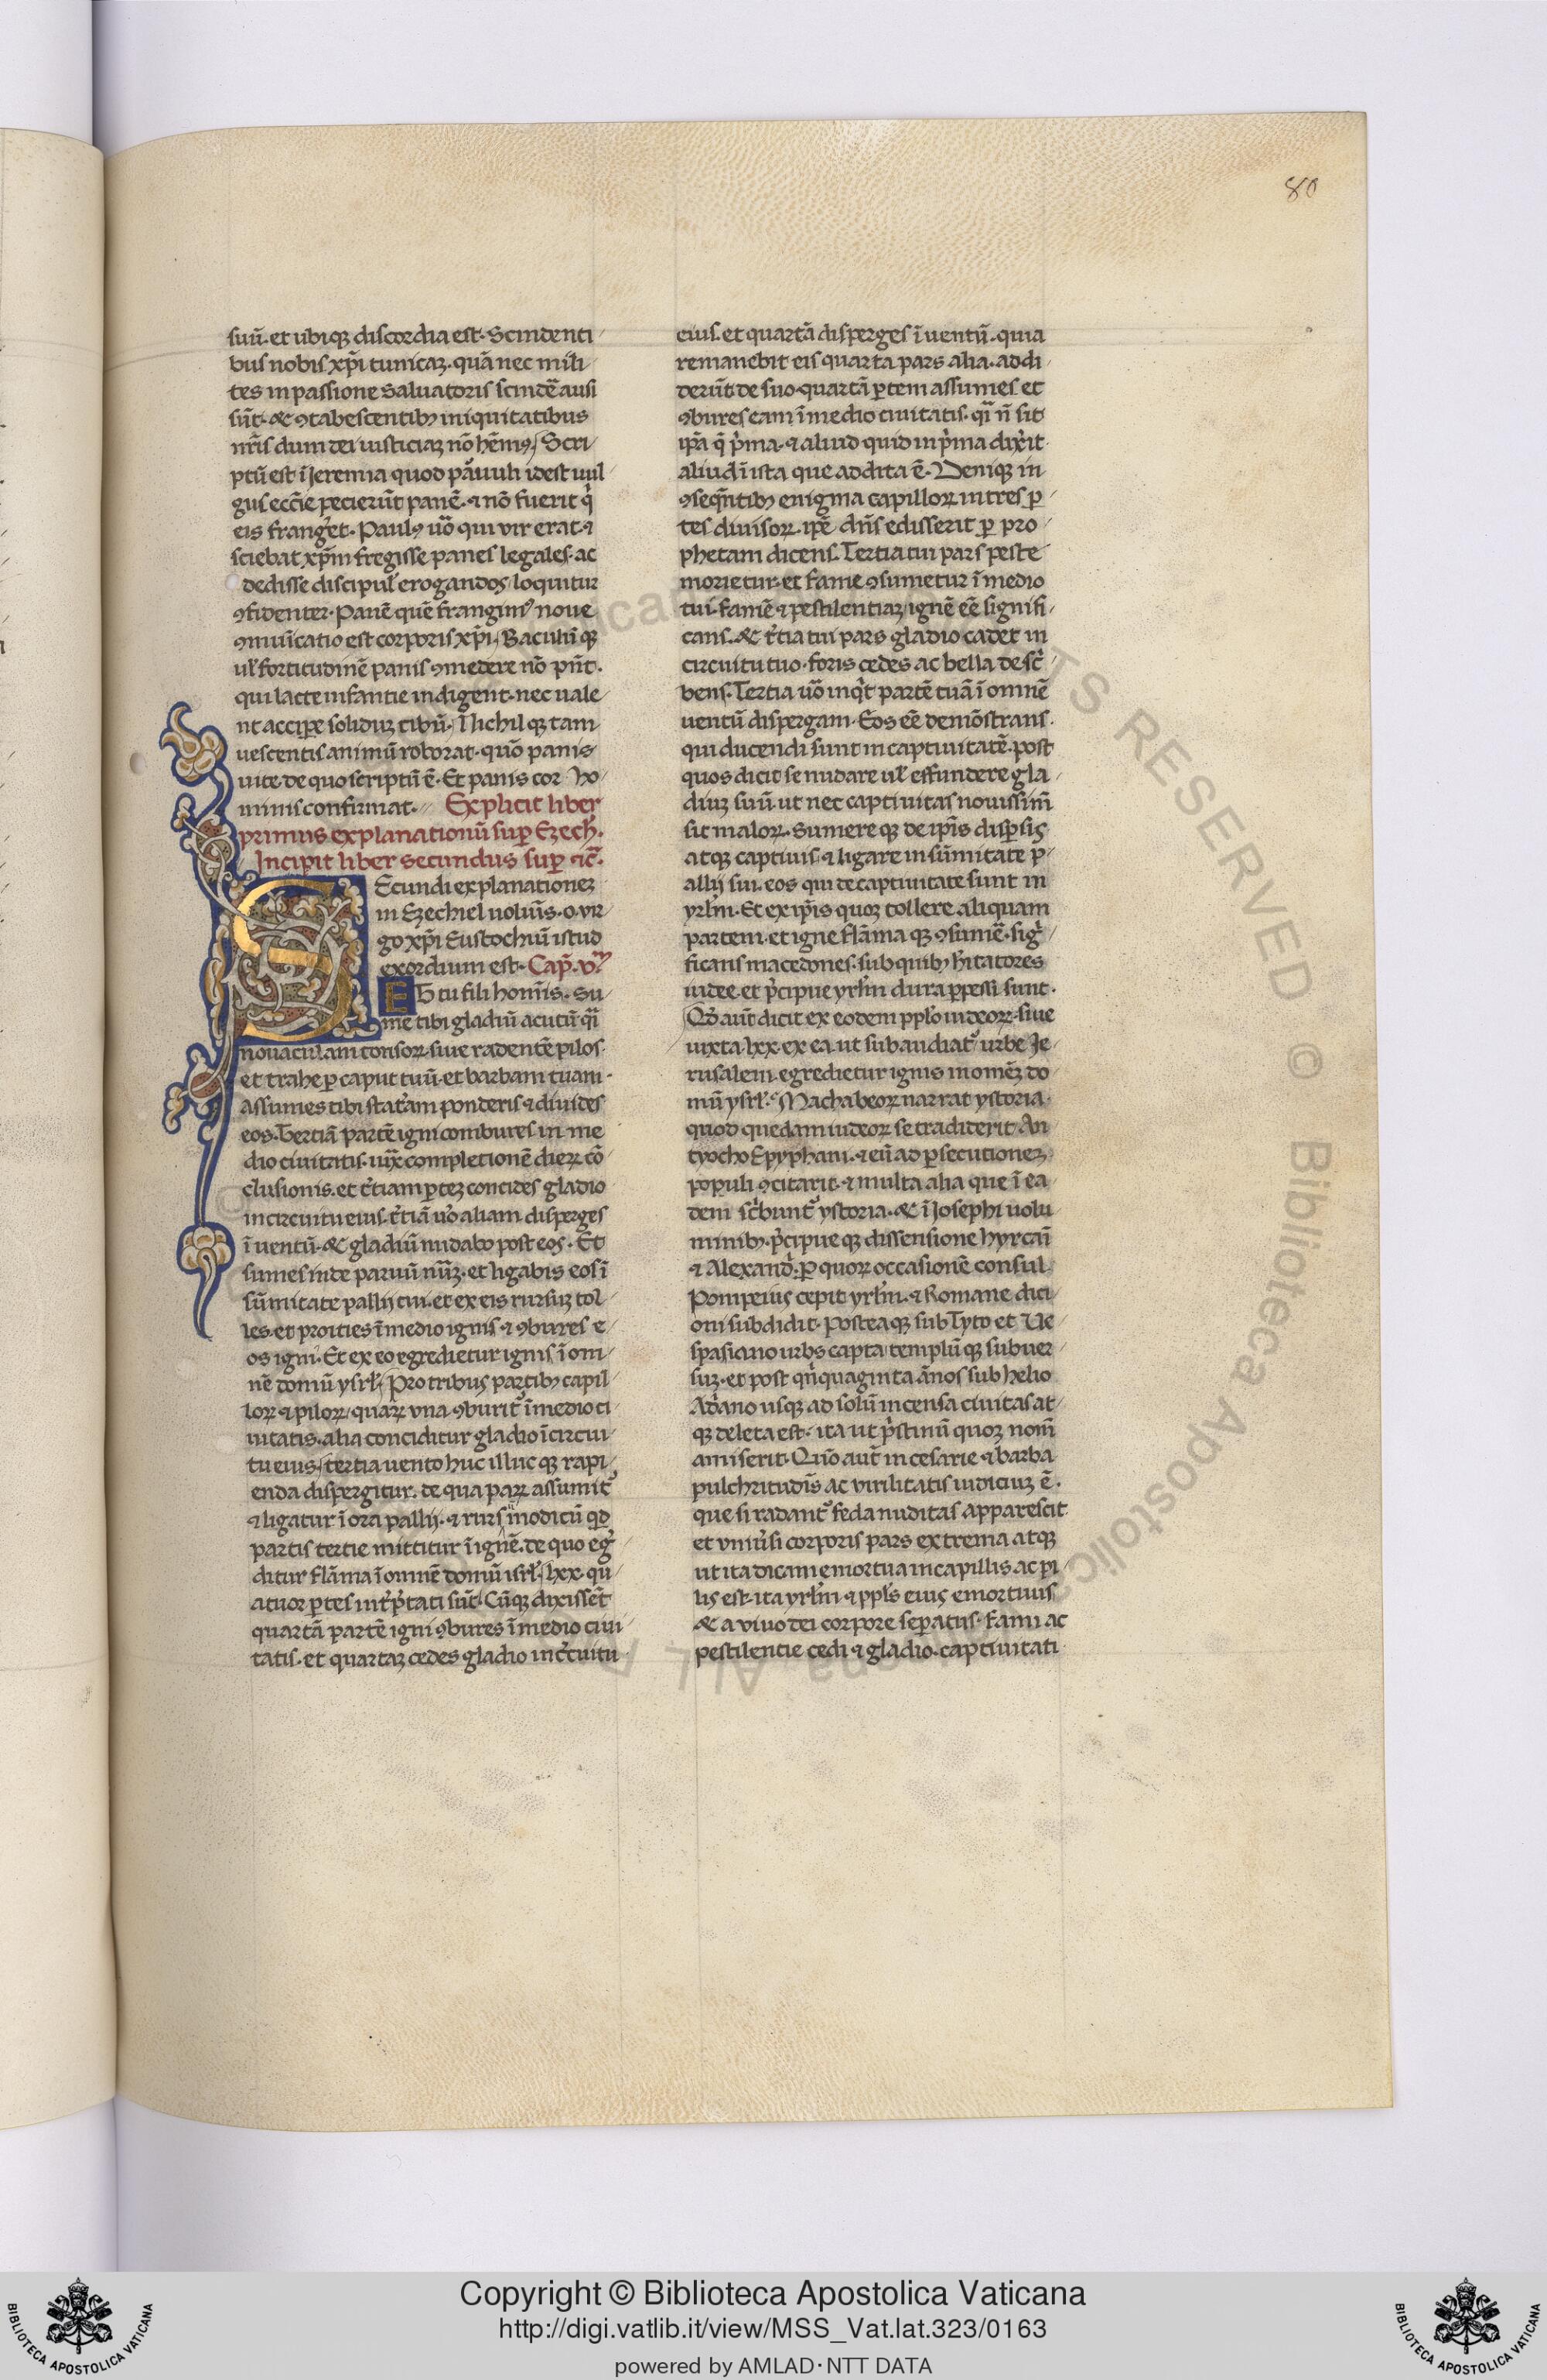 80
suū. et ubiqꝫ discordia est. Scindenti
bus nobis xp̄i tunicaꝫ. quā nec mili
tes in passione saluatoris scindē ausi
sūt. & ꝯtabescentibꝫ iniquitatibus
nr̄is dum dei iusticiaꝫ nō hēmꝯ. Scri
ptū est ī Jeremia quod pauuli idest uul
gus ecc̄ie pecierūt panē. ⁊ nō fuerit q̇
eis frangeret. Paulꝯ uō qui vir erat. ⁊
sciebat xp̄m fregisse panes legales. ac
dedisse discipul' erogandos loquitur
ꝯfidenter. Panē quē frangimꝰ noue
ꝯmuīcatio est corporis xp̄i. Baculū qꝫ
ul' fortitudinē panis ꝯmedere nō pn̄t.
qui lacte infantie indigent. nec uale
nt accipe soliduꝫ cibū. Nichil qꝫ tam
uescentis animū roborat. quō panis
uite de quo scriptū ē. Et panis cor ho
minis confirmat. Explicit liber
primus explanationū suꝑ Ezech.
Incipit liber secundus suꝑ ⁊c̄.
SEcundi explanationeꝫ
in Ezechiel uolum̄s. o. vir
go xp̄i Eustochiū istud
exordium est. Cap̄. vm̄
Et tu fili homīs. su
me tibi gladiū acutū qī
nouaculam tonsoꝝ. siue radentē pilos.
et trahe ꝑ caput tuū. et barbam tuam.
assumes tibi stat'am ponderis ⁊ diuides
eos. Tertiā partē igni combures in me
dio ciuitatis. iux̄ completionē dieꝝ cō
clusionis. et t'tiam ꝑteꝫ concides gladio
in circuitu eius. t'tiā uō aliam disperges
ī uentū. & gladiū nudabo post eos. Et
sumes inde paruū nūꝫ. et ligabis eos ī
sūmitate pallij tui. et ex eis rursuꝫ tol
les. et proities ī medio ignis. ⁊ ꝯbures e
os igni. Et ex eo egredietur ignis ī om
nē domū ysrl'. Pro tribus partibꝫ capil
loꝝ ⁊ piloꝝ. quaꝝ vna ꝯburit' ī medio ci
uitatis. alia conciditur gladio ī circui
tu eius. tertia uento huc illuc qꝫ rapi
enda dispergitur. de qua paꝝ assumit'
⁊ ligatur ī ora pallij. ⁊ rurs' modicū qd
partis tertie mittitur ī ignē. de quo eg'
ditur flāma ī omnē domū isrl'. lxx. qu
atuor ꝑtes int'p'tati sūt. Cūqꝫ dixissēt
quartā partē igni ꝯbures ī medio ciui
tatis. et quartaꝫ cedes gladio in c'cuitu
eius. et quartā disperges ī uentū. quia
remanebit eis quarta pars alia. addi
derūt de suo. quartā ꝑtem assumes. et
ꝯbures eam ī medio ciuitatis. qī n̄ sit
ip̄a q̄ p'ma. ⁊ aliud quid in p'ma dix'it
aliud ī ista que addita ē. Deniqꝫ in
ꝯseqn̄tibꝫ enigma capilloꝝ in tres ꝑ
tes diuisoꝝ. ip̄e dn̄s edisserit ꝑ pro
phetam dicens. Tertia tui pars peste
morietur. et fame ꝯsumetur ī medio
tui. famē ⁊ pestilentiaꝫ ignē eē signifi
cans. & t'tia tui pars gladio cadet in
circuitu tuo. foris cedes ac bella desc'
bens. Tertia uō inq't partē tuā ī omnē
uentū dispergam. Eos eē demōstrans.
qui ducendi sunt in captiuitatē. post
quos dicit se nudare ul' effundere gla
diuꝫ suū. ut nec captiuitas nouissim̄
sit maloꝝ. Sumere qꝫ de ip̄is disꝑsis
atqꝫ captiuis. ⁊ ligare in sūmitate p
allij sui. eos qui de captiuitate sunt in
yrlm̄. Et ex ip̄is quoꝫ tollere aliquam
partem. et igne flāma qꝫ ꝯsumē. sig'
ficans macedones. sub quibꝫ hītatores
iudee. et p'cipue yrlm̄ dura ꝑpessi sunt.
Qd' aut̄ dicit ex eodem ppl'o iudeoꝝ. siue
iuxta. lxx. ex ea. ut subaudiat' urbe Je
rusalem. egredietur ignis in omēꝫ do
mū ysrl'. Machabeoꝝ narrat ystoria.
quod quedam iudeoꝝ se tradiderit An
tyocho Epyphani. ⁊ eū ad ꝑsecutioneꝫ
populi ꝯcitarit. ⁊ multa alia que ī ea
dem sc'bunt' ystoria. & ī Josephi uolu
minibꝫ. p'cipue qꝫ dissensione hyrcani
⁊ Alexand'. ꝑ quoꝝ occasionē consul
Pompeius cepit yrlm̄. ⁊ Romane dici
oni subdidit. Postea qꝫ sub Tyto et Ve
spasiano urbs capta templū qꝫ subuer
suꝫ. et post qn̄quaginta ānos sub helio
Ad'ano usqꝫ ad solū incensa ciuitas at
qꝫ deleta est. ita ut p'stinū quoꝫ nom̄
amiserit. Quō aut̄ in cesarie ⁊ barba
pulchritudīs ac virilitatis iudiciuꝫ ē.
que si radant' feda nuditas apparescit
et vniu'si corporis pars extrema atqꝫ
ut ita dicam emortua in capillis ac pi
lis est. ita yrlm̄ ⁊ ppl's eius emortuus
& a viuo dei corpore seperatus. fami ac
pestilentie cedi ⁊ gladio. captiuitati
Copyright © Biblioteca Apostolica Vaticana
http://digi.vatlib.it/view/MSS_Vat.lat.323/0163
powered by AMLAD·NTT DATA
BIBLIOTECA APOSTOLICA VATICANA
BIBLIOTECA APOSTOLICA VATICANA